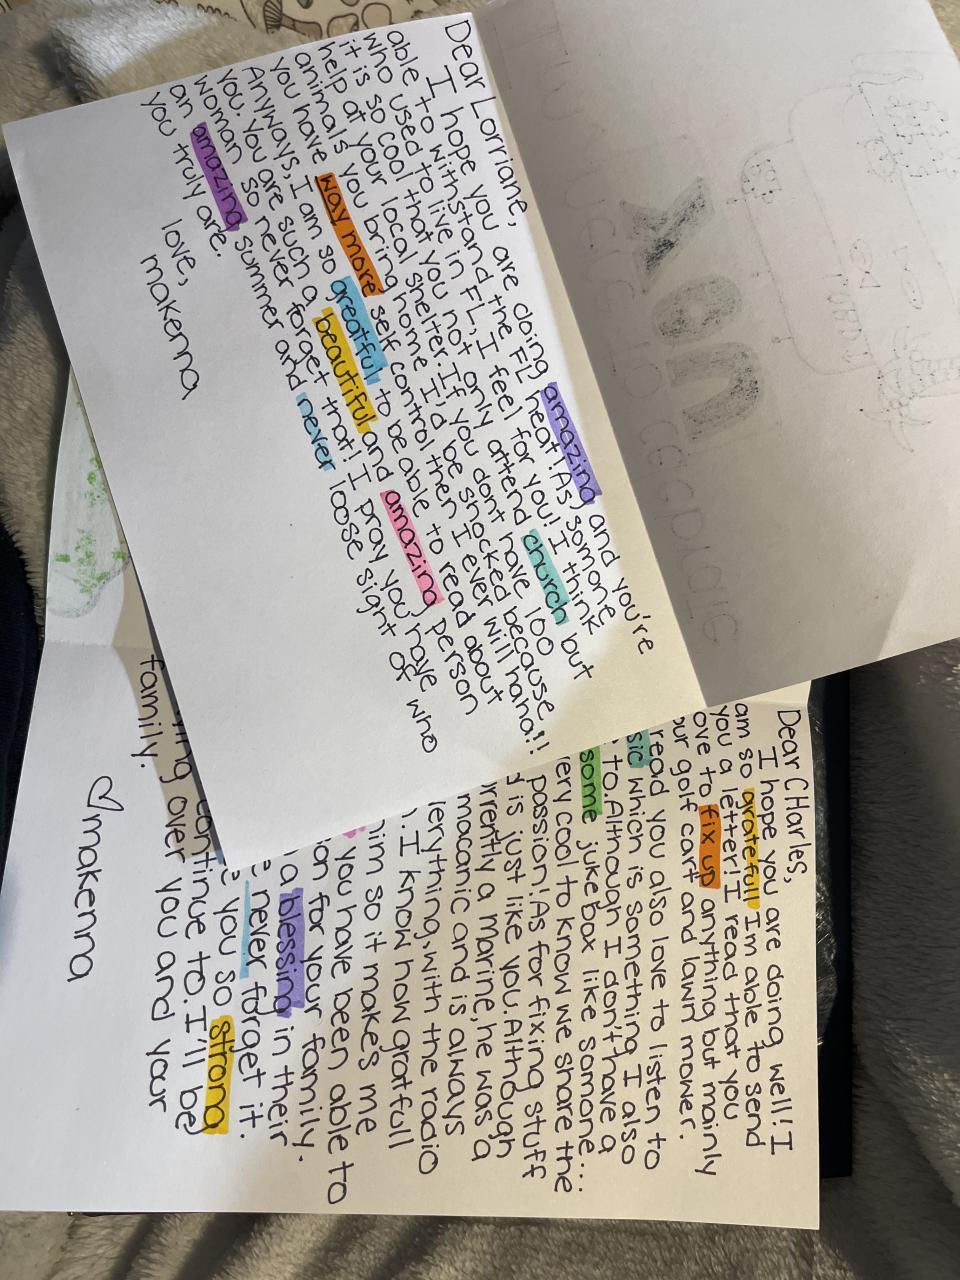 Dear Lorriane,
I hope you are doing amazing and you're
able to withstand the FL heat! As somone
who used to live in FL, I feel for you! I think
it is so cool that you not only attend church but
help at your local shelter. I'd be shocked because
animals you bring home If you dont have 100
you have way more self control then I ever will haha!!
Anyways, I am so greatful to be able to read about
you. You are such a beautiful and amazing person
woman so never forget that! I pray you have who
an amazing summer and never loose sight of
you truly are.
love,
makenna
Dear CHarles,
I hope you are doing well! I
am so gratefull I'm able to send
you a letter! I read that you
ove to fix up anything but mainly
our golf cart and lawn mower.
read you also love to listen to
sic which is something I also
to. Although I don't have a
some juke box like somone...
ery cool to know we share the
passion! As for fixing stuff
d is just like you. Although
rrently a marine, he was a
macanic and is always
erything, with the radio
. I know how gratfull
you have been able to
him so it makes me
on for your family.
a blessing in their
never forget it.
you so strong
continue to. I'll be
ing over you and your
family.
makenna